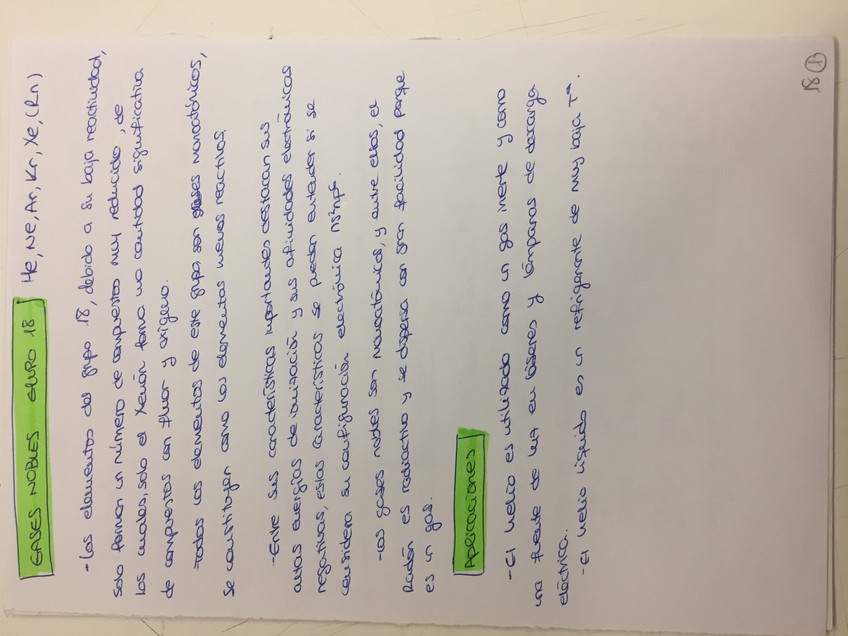 GASES NOBLES GRUPO 18 He, Ne, Ar, Kr, Xe, (Rn)
- Los elementos del grupo 18, debido a su baja reactividad,
solo forman un número de compuestos muy reducido, de
los cuales, solo el Xenón forma una cantidad significativa
de compuestos con fluor y oxígeno.
-Todos los elementos de este grupo son gases monoatómicos,
se constituyen como los elementos menos reactivos.
-Entre sus características importantes destacan sus
altas energías de ionización y sus afinidades electrónicas
negativas, estas características se pueden entender si se
considera su configuración electrónica ns²np⁶.
-Los gases nobles son monoatómicos, y entre ellos, el
Radón es radiactivo y se dispersa con gran facilidad porque
es un gas.
Aplicaciones
- El helio es utilizado como un gas inerte y como
una fuente de luz en láseres y lámparas de descarga
eléctrica.
- El helio líquido es un refrigerante de muy baja Tª.
18